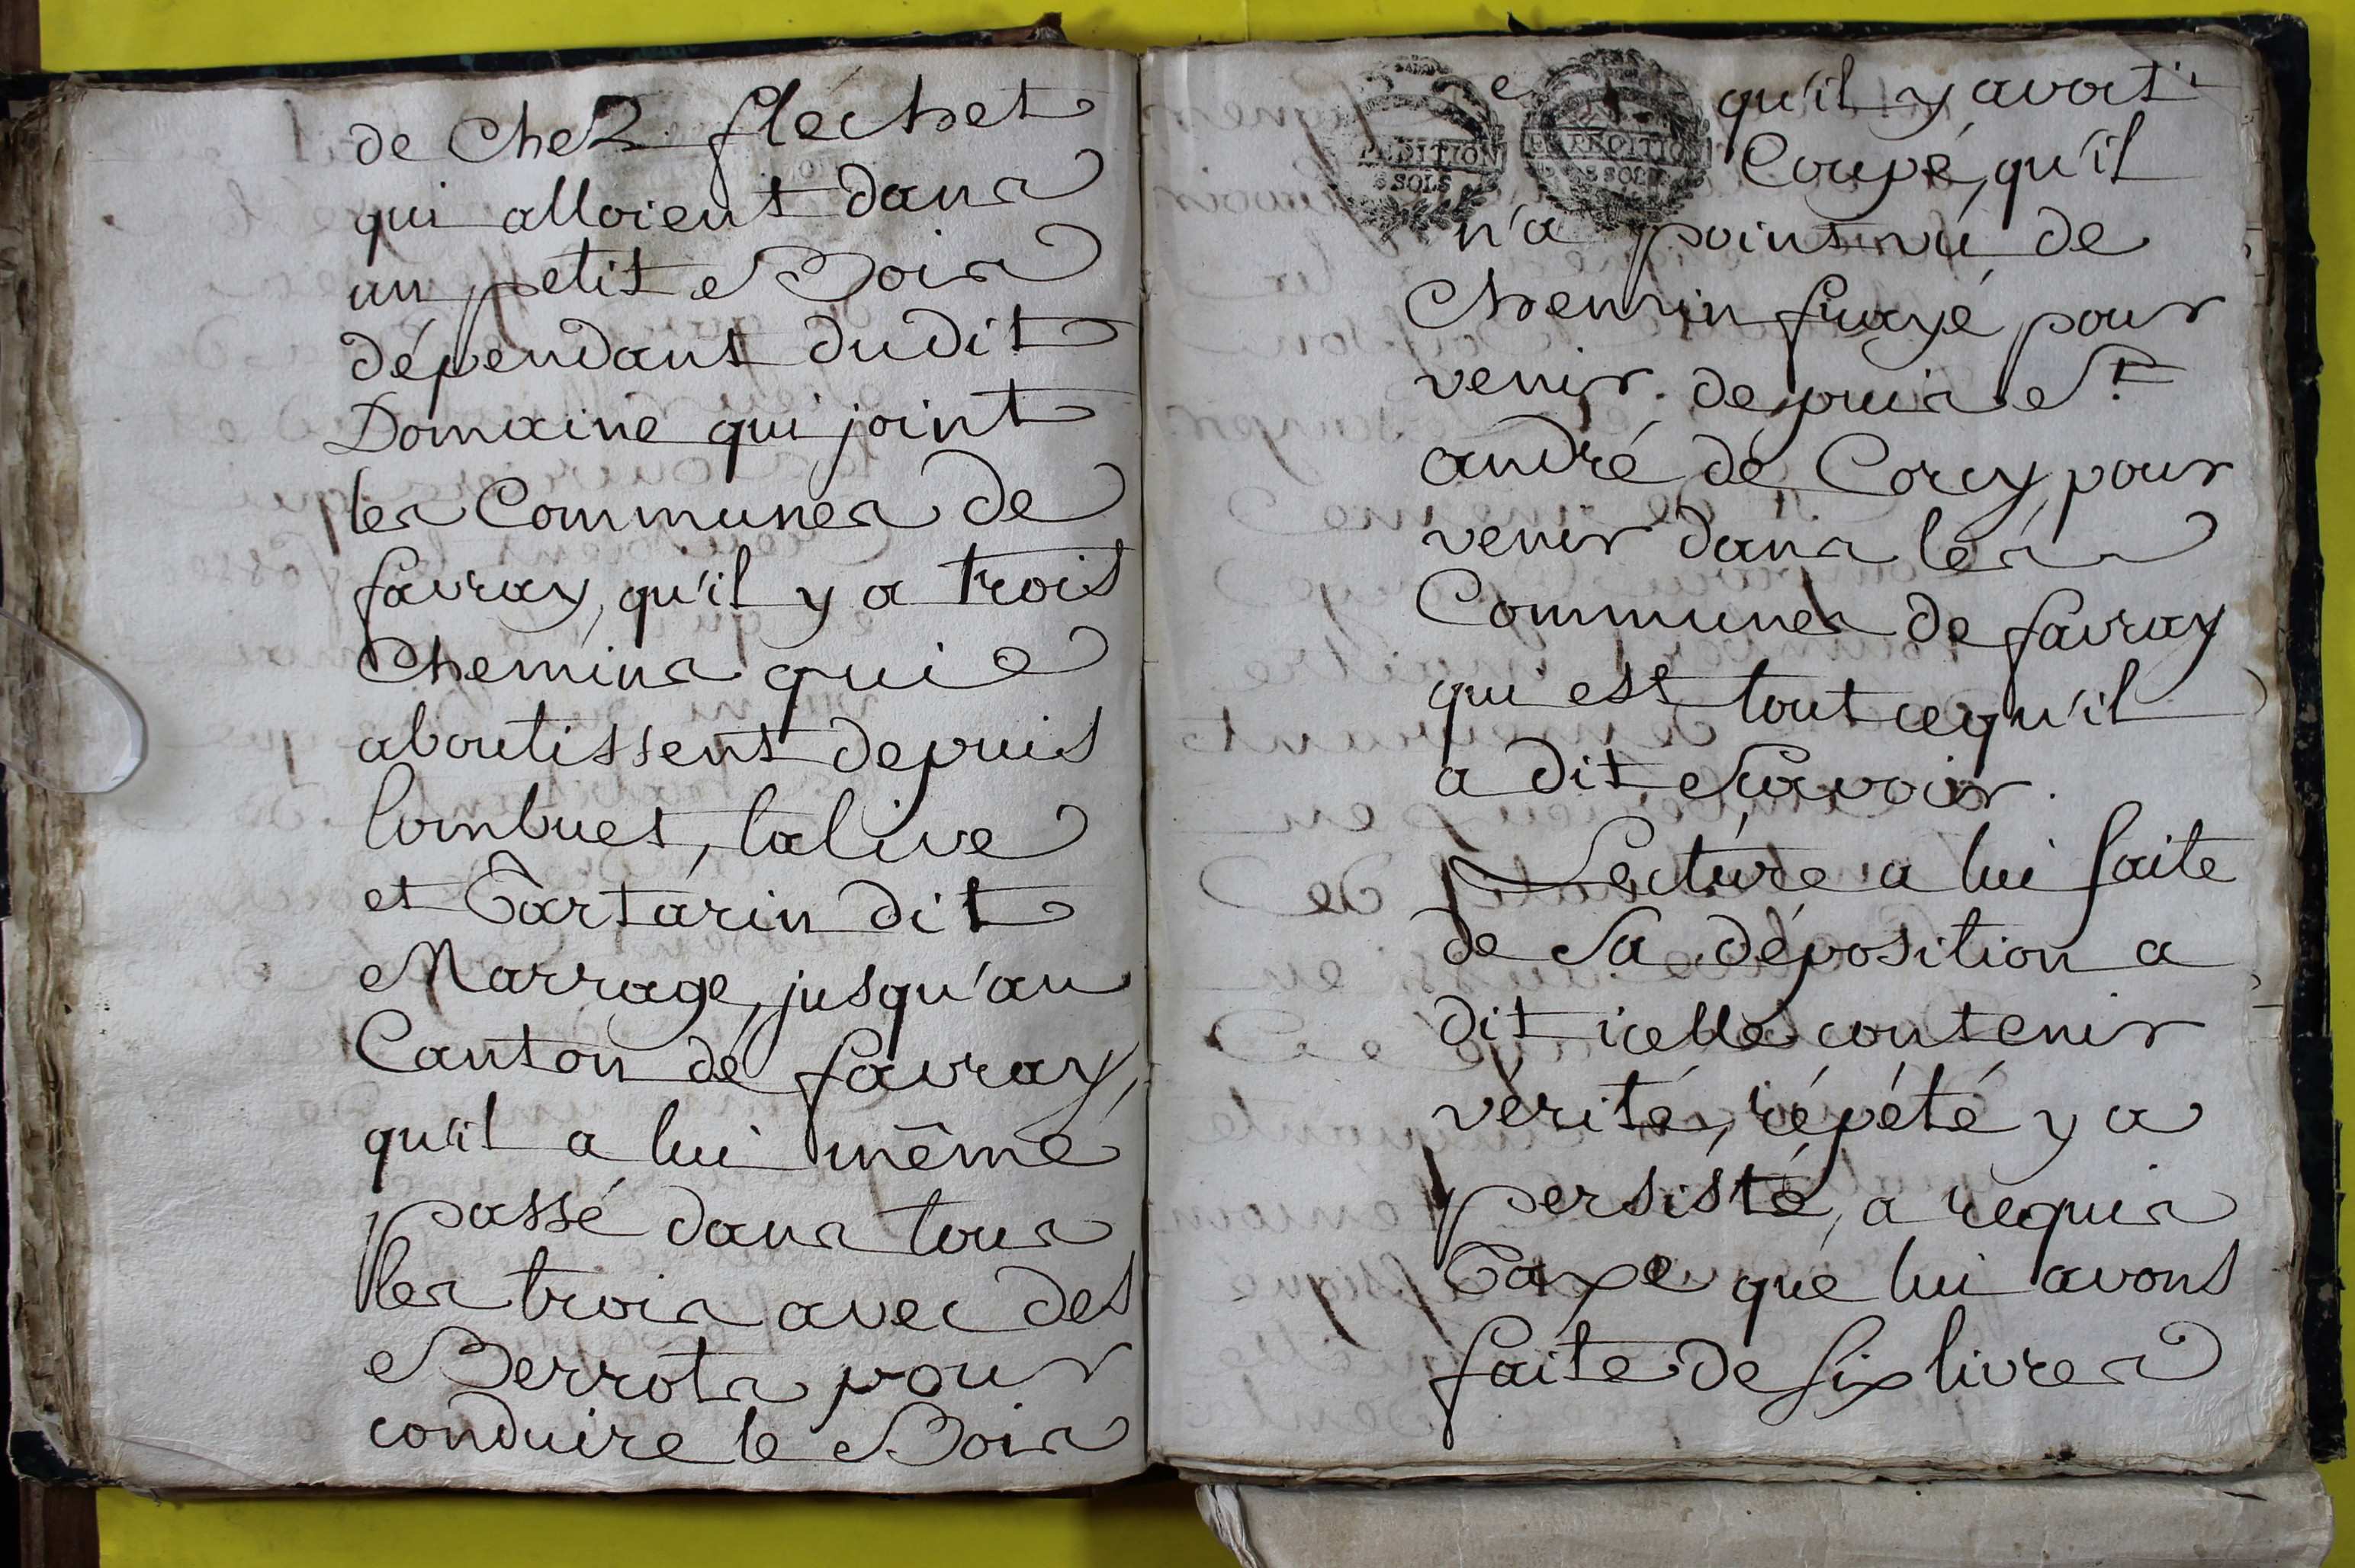 de Chez flechet
qui alloient dans
un petit Bois
dépendant dudit
Domaine qui joint
les Communes de
favray, qu'il y a trois
Chemins qui
aboutissent depuis
lombuet, talive
et Tartarin dit
Marrage, jusqu'au
Canton de favray,
qu'il a lui même
passé dans tous
les trois avec des
Berrots pour
conduire le Bois
qu'il y avoit
EXPEDITION
8 SOLS
Coupé, qu'il
n'a point vu de
Chemin frayé pour
venir depuis St
andré de Corcy, pour
venir dans les
Communes de favray
qui est tout cequ'il
a dit Savoir.
Lecture a lui faite
de Sa déposition a
dit icelle contenir
vérité, répété y a
persisté, a requis
Taxe que lui avons
faite de six livres